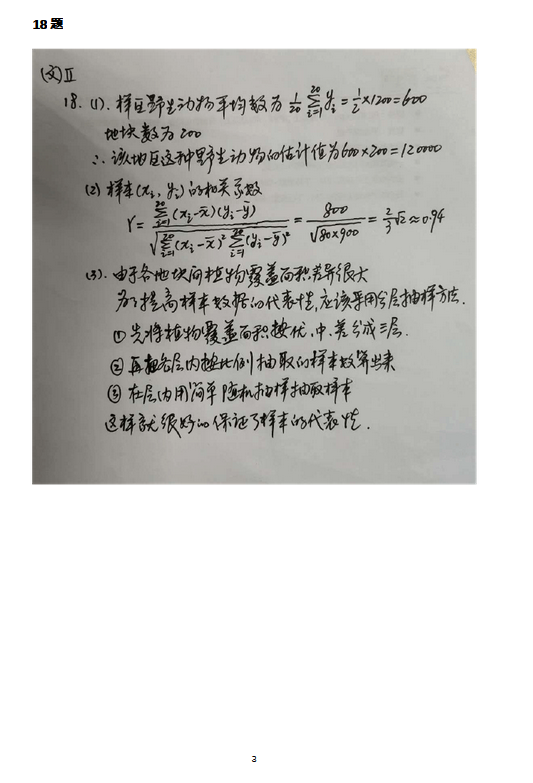 18 题
(文)Ⅱ
18. (1). 样区野生动物平均数为 1/20 ∑_{i=1}^{20} y_i = 1/2 × 1200 = 600
地块数为 200
∴ 该地区这种野生动物的估计值为 600 × 200 = 120000
(2) 样本 (x_i, y_i) 的相关系数
r = ∑_{i=1}^{20} (x_i - x̄)(y_i - ȳ) / √(∑_{i=1}^{20} (x_i - x̄)² ∑_{i=1}^{20} (y_i - ȳ)²) = 800 / √(80×900) = 2/3 √2 ≈ 0.94
(3). 由于各地块间植物覆盖面积差异很大
为了提高样本数据的代表性, 应该采用分层抽样方法.
① 先将植物覆盖面积按优、中、差分成三层.
② 再把各层内按比例抽取的样本数算出来
③ 在层内用简单随机抽样抽取样本
这样就很好的保证了样本的代表性.
3